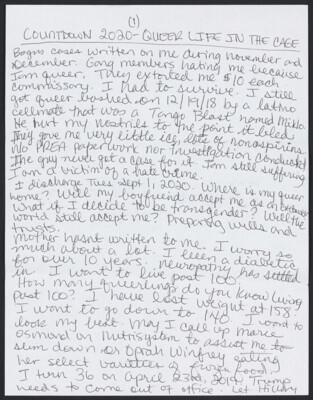 (1)
COUNTDOWN 2020- QUEER LIFE IN THE CAGE
Bogus cases written on me during november and
december. Gang members hating me because
I am queer. They extorted me $10 each
commissary. I had to survive. I still
got queer bashed on 12/19/18 by a latino
cellmate that was a Tango Blast named Mikko.
He hurt my nostrils to the point it bled
They gave me very little ice, lots of nonaspirins.
No PREA paperwork nor investigation conducted
The guy never got a case for it. I am still suffering
I am a victim of a hate crime.
I discharge Tues Sept 1, 2020. Where is my queer
home? Will my boyfriend accept me as an
What if I decide to be transgender? Will the
world still accept me? Preparing wills and
trusts.
Mother hasnt written to me. I worry so
much about a lot. I been a diabetic
for over 10 years. neuropathy has settled
in. I want to live past 100.
How many queerlings do you know living
past 100? I have lost weight at 158.
I want to go down to 140. I want to
look my best. May I call up marie
osmond on nutrisystem to assist me to
slim down or Oprah Winfrey eating
her select varieties of frozen food.
I turn 36 on april 23rd, 2019. Trump
needs to come out of office. Let Hillary